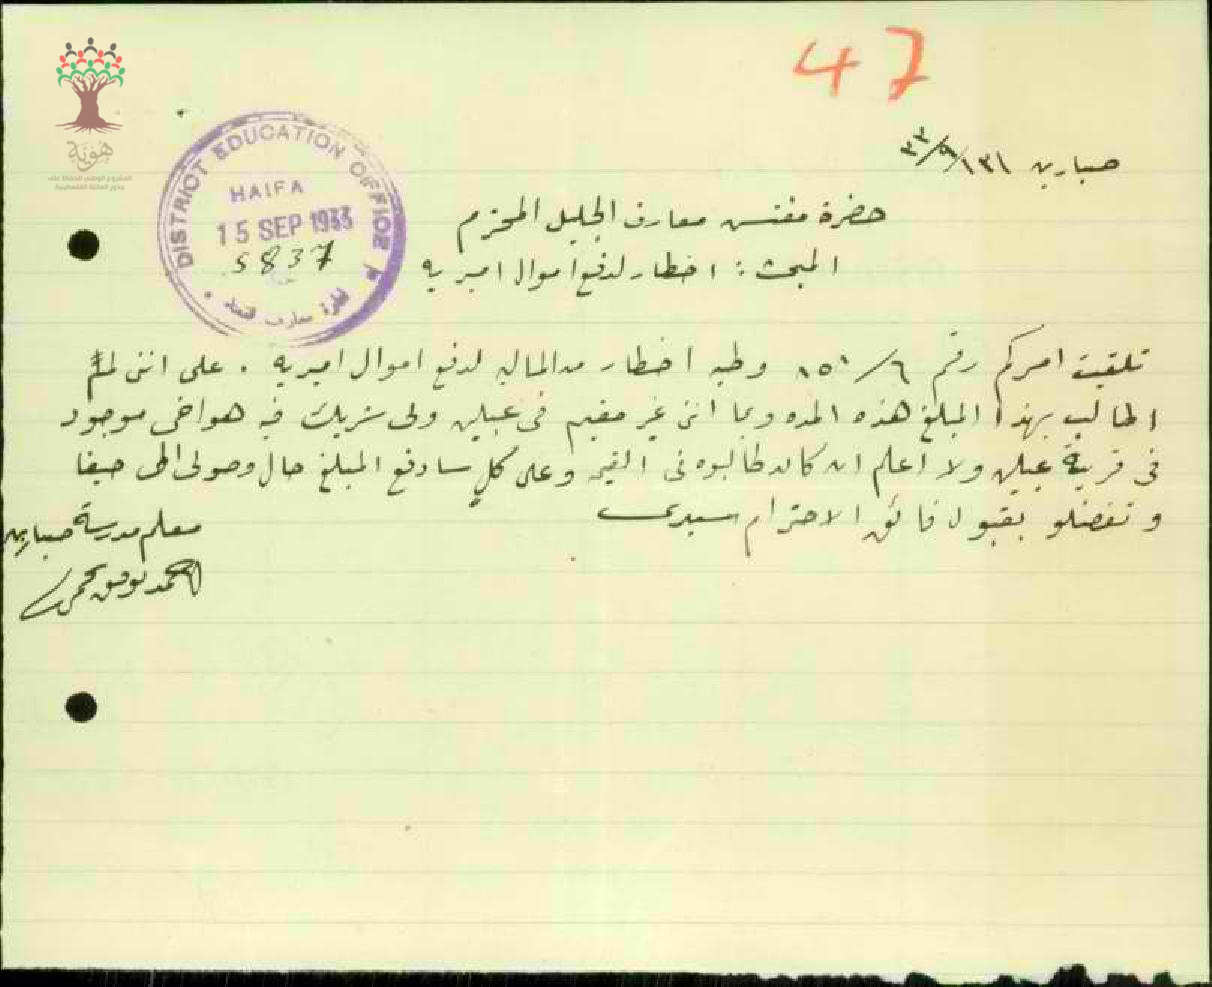 47
هوية
المشروع الوطني للحفاظ على
جذور العائلة الفلسطينية
DISTRICT EDUCATION OFFICE
HAIFA
15 SEP 1933
5837
صبارين ١٣/٩/٣٣
حضرة مفتش معارف الجليل المحترم
المبحث: اخطار لدفع اموال اميريه
تلقيت امركم رقم ٦/ وطيه اخطار من الماليه لدفع اموال اميريه . على انني لم
اطالب بهذا المبلغ هذه المده وبما انني غير مقيم في عبلين ولي شريك فيه هو اخي موجود
في قرية عبلين ولا اعلم ان كانو طالبوه في القيمه وعلى كلٍ سادفع المبلغ حال وصولي الى حيفا
و تفضلو بقبول فائق الاحترام سيدي
معلم مدرسة صبارين
احمد توفيق